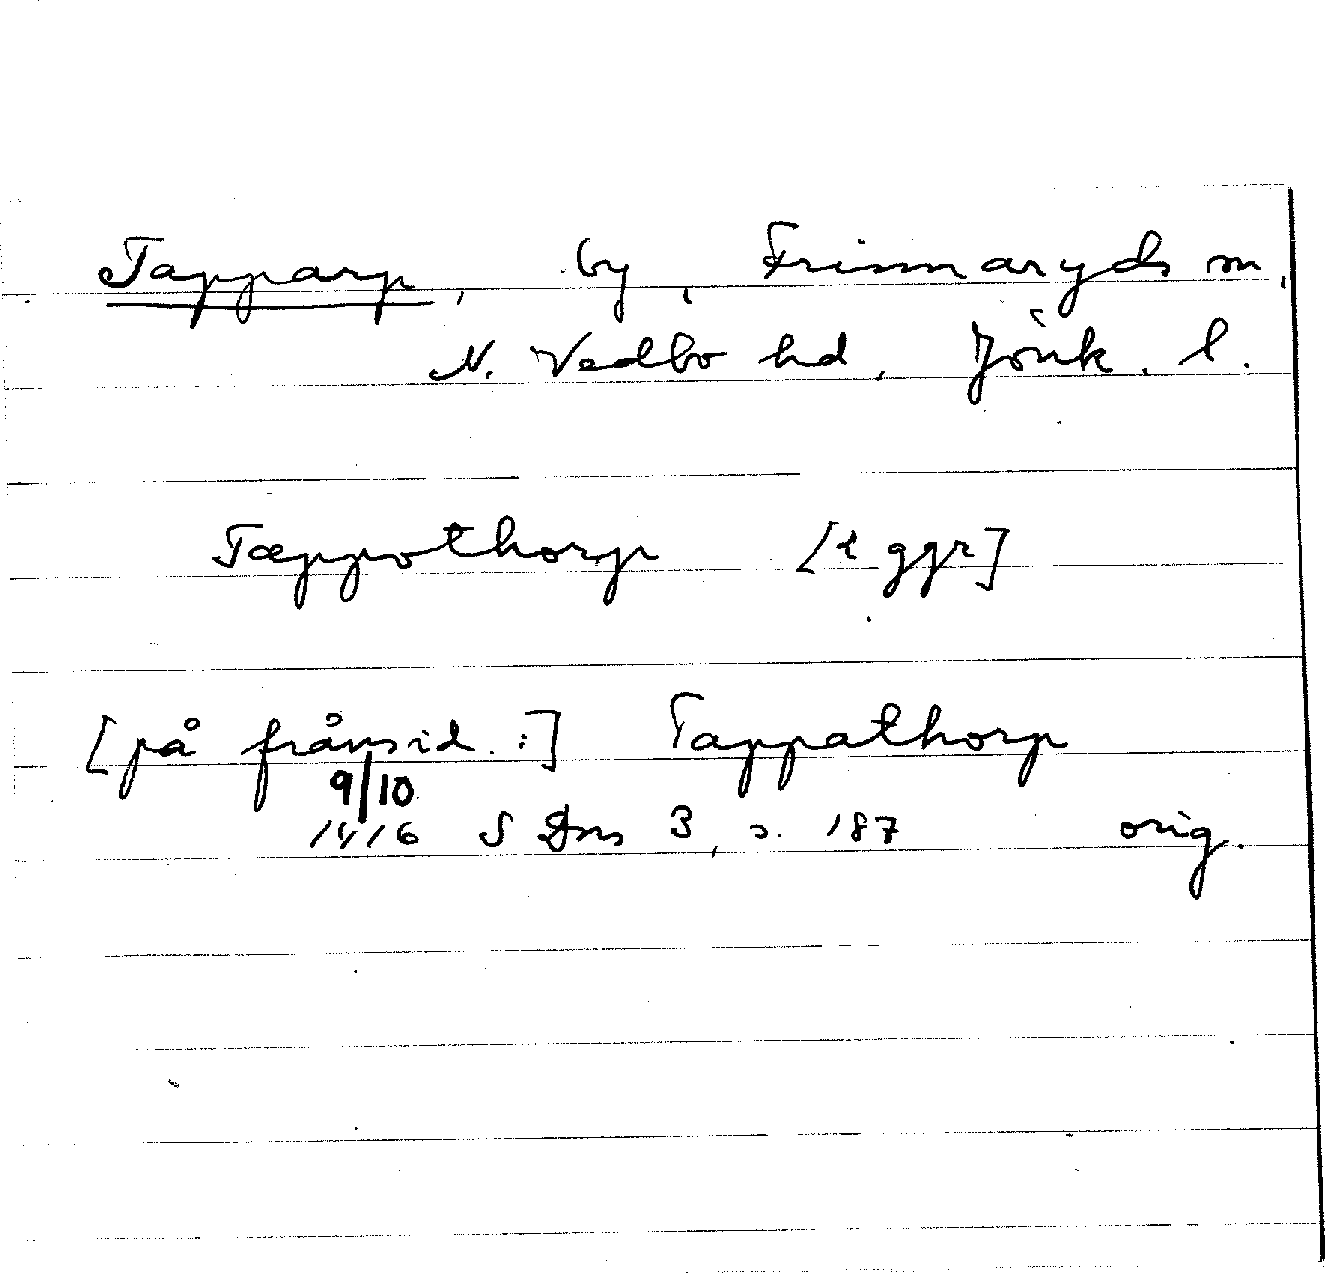 Tapparp, by, Frinnaryds sn,
N. Vedbo hd, Jönk. l.
Tæppothorp [2 ggr]
[på frånsid.:] Tappathorp
9/10
1416 SDns 3, s. 187 orig.